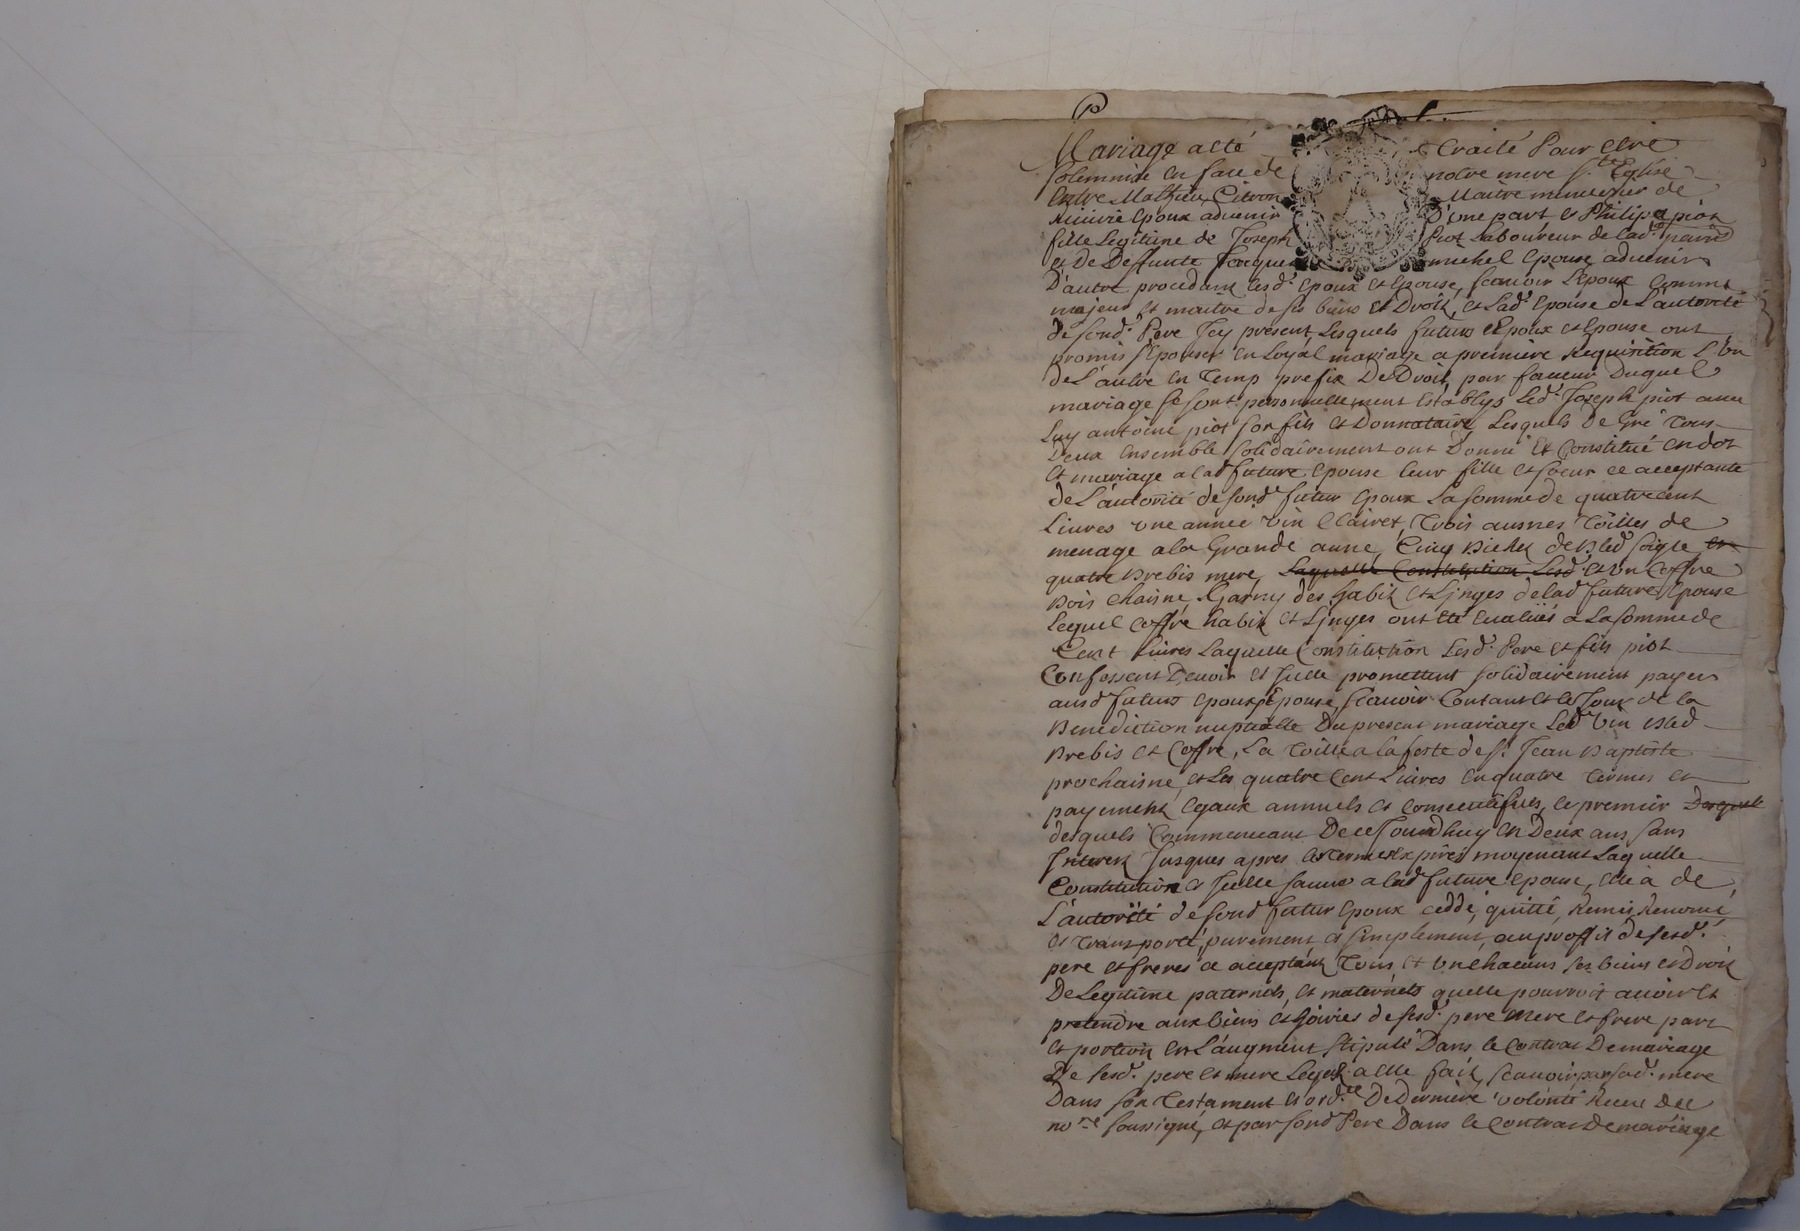 Mariage a eté traité Pour etre
solemnisé en face de notre mere s.te Eglise
Entre Mathieu Citron Maitre munier de
Epoux aduenir D'une part et Philipe piot
fille Legitime de Joseph Piot Laboureur de lad.
et De Deffunte Jacque michel Epouse aduenir
D'autre procedant lesd. Epoux et Epouse, scauoir L'epoux comme
majeur et maitre de ses biens et Droits, et Lad. Epouse de L'autorité
de sond. Pere Icy present, Lesquels futurs Epoux et Epouse ont
promis s'Epouser en Loyal mariage a premiere Requisition L'un
de L'autre en Temp prefix De Droit, par faueur Duquel
mariage se sont personnellement Establys Led. Joseph piot auec
Luy antoine piot son fils et Donnataire, Lesquels de Gré Tous
Deux ensemble solidairement ont Donné et Constitué en dot
et mariage a lad future Epouse leur fille et soeur ce acceptante
de L'autorité de sond futur Epoux La somme de quatre cent
Liures une année vin Clairet, Trois ausnes Toilles de
menage a la Grande aune, Cinq Bichet de Bled soigle et
quatre Brebis mere, Laquelle Constitution Lesd. et un Coffre
Bois Chaisne Garny des habit et Linges de lad future Epouse
Lequel Coffre habit et Linges ont été Eualués a La somme de
Cent Liures Laquelle Constitution Lesd. Pere et fils piot
Confessent Deuoir et Icelle promettent solidairement payer
ausd futurs Epoux Epouse, scauoir Contant et le Jour de la
Benediction nuptialle Du present mariage Led Vin Bled
Brebis et Coffre, La Toille a la feste de s.t Jean Baptiste
prochaisne, et Les quatre Cent Liures en quatre Termes et
payement Egaux annuels et Consecutifues, Le premier Desquel
desquels Commencant De ce Jourdhuy en Deux ans sans
Interest Jusques apres les termes Expirés moyenant Laquelle
Constitution et Icelle sauue a lad future Epouse, elle a de
L'autorité de sond futur Epoux cedde, quitté, Remis Renoncé
et Transporté, purement et simplement, au proffit de sesd.
pere et freres ce acceptant Tous et un chacuns ses biens et Droit
De Legitime paternels, et maternels quelle pourroit auoir et
pretendre aux biens et hoiries de sesd. pere mere et frere part
et portion en L'augment stipulé Dans le Contrat De mariage
De sesd. pere et mere Legat a elle fait, scauoir par sad. mere
Dans son Testament et ord.ce De Derniere volonté Receu Du
no.re soussigné, et par sond Pere Dans le Contrat De mariage